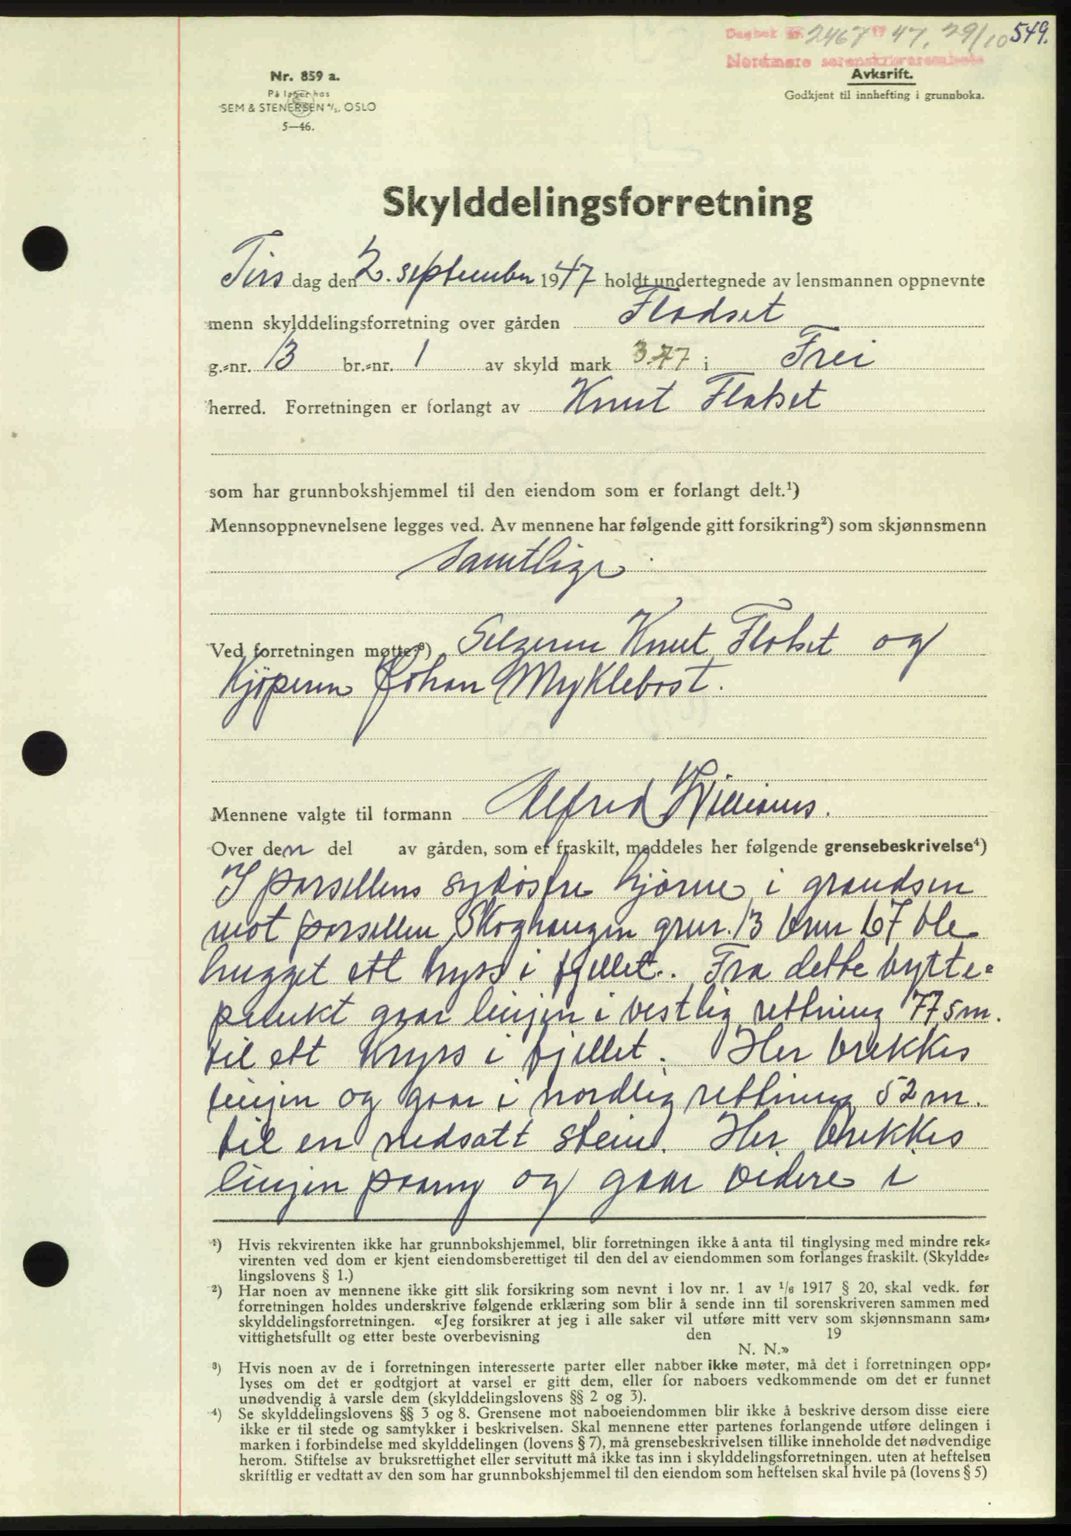 Dagbok nr. 2467 19 47. 29/10 549.
Nordmøre sorenskriverembete
Nr. 859 a.
På lager hos
SEM & STENERSEN A/S, OSLO
5—46.
Avksrift.
Godkjent til innhefting i grunnboka.
Skylddelingsforretning
Tirs dag den 2. september 1947 holdt undertegnede av lensmannen oppnevnte
menn skylddelingsforretning over gården Flodset
g.-nr. 13 br.-nr. 1 av skyld mark 3.77 i Frei
herred. Forretningen er forlangt av Knut Flatset
som har grunnbokshjemmel til den eiendom som er forlangt delt.¹)
Mennsoppnevnelsene legges ved. Av mennene har følgende gitt forsikring²) som skjønnsmenn
Samtlige.
Ved forretningen møtte³) Selgeren Knut Flatset og
Kjøperen Johan Myklebost.
Mennene valgte til formann Alfred Williams.
Over den del av gården, som er fraskilt, meddeles her følgende grensebeskrivelse⁴)
I parsellens sydøstre hjørne i grændsen
mot parsellen Skoghaugen grnr. 13 brnr 67 ble
hugget ett kryss i fjellet. Fra dette bytte-
punkt gaar linjen i vestlig rettning 77,5 m.
til ett kryss i fjellet. Her brekkes
linjen og gaar i nordlig rettning 52 m.
til en nedsatt stein. Her brekkes
linjen paany og gaar videre i
¹) Hvis rekvirenten ikke har grunnbokshjemmel, blir forretningen ikke å anta til tinglysing med mindre rek-
virenten ved dom er kjent eiendomsberettiget til den del av eiendommen som forlanges fraskilt. (Skyldde-
lingslovens § 1.)
²) Har noen av mennene ikke gitt slik forsikring som nevnt i lov nr. 1 av 1/6 1917 § 20, skal vedk. før
forretningen holdes underskrive følgende erklæring som blir å sende inn til sorenskriveren sammen med
skylddelingsforretningen. «Jeg forsikrer at jeg i alle saker vil utføre mitt verv som skjønnsmann sam-
vittighetsfullt og etter beste overbevisning den 19
N. N.»
³) Hvis noen av de i forretningen interesserte parter eller naboer ikke møter, må det i forretningen opp-
lyses om det er godtgjort at varsel er gitt dem, eller for naboers vedkommende om det er funnet
unødvendig å varsle dem (skylddelingslovens §§ 2 og 3).
⁴) Se skylddelingslovens §§ 3 og 8. Grensene mot naboeiendommen blir ikke å beskrive dersom disse eiere
ikke er til stede og samtykker i beskrivelsen. Skal mennene etter partenes forlangende utføre delingen i
marken i forbindelse med skylddelingen (lovens § 7), må grensebeskrivelsen tillike inneholde det nødvendige
herom. Stiftelse av bruksrettighet eller servitutt må ikke tas inn i skylddelingsforretningen. uten at heftelsen
skriftlig er vedtatt av den som har grunnbokshjemmel til den eiendom som heftelsen skal hvile på (lovens § 5)